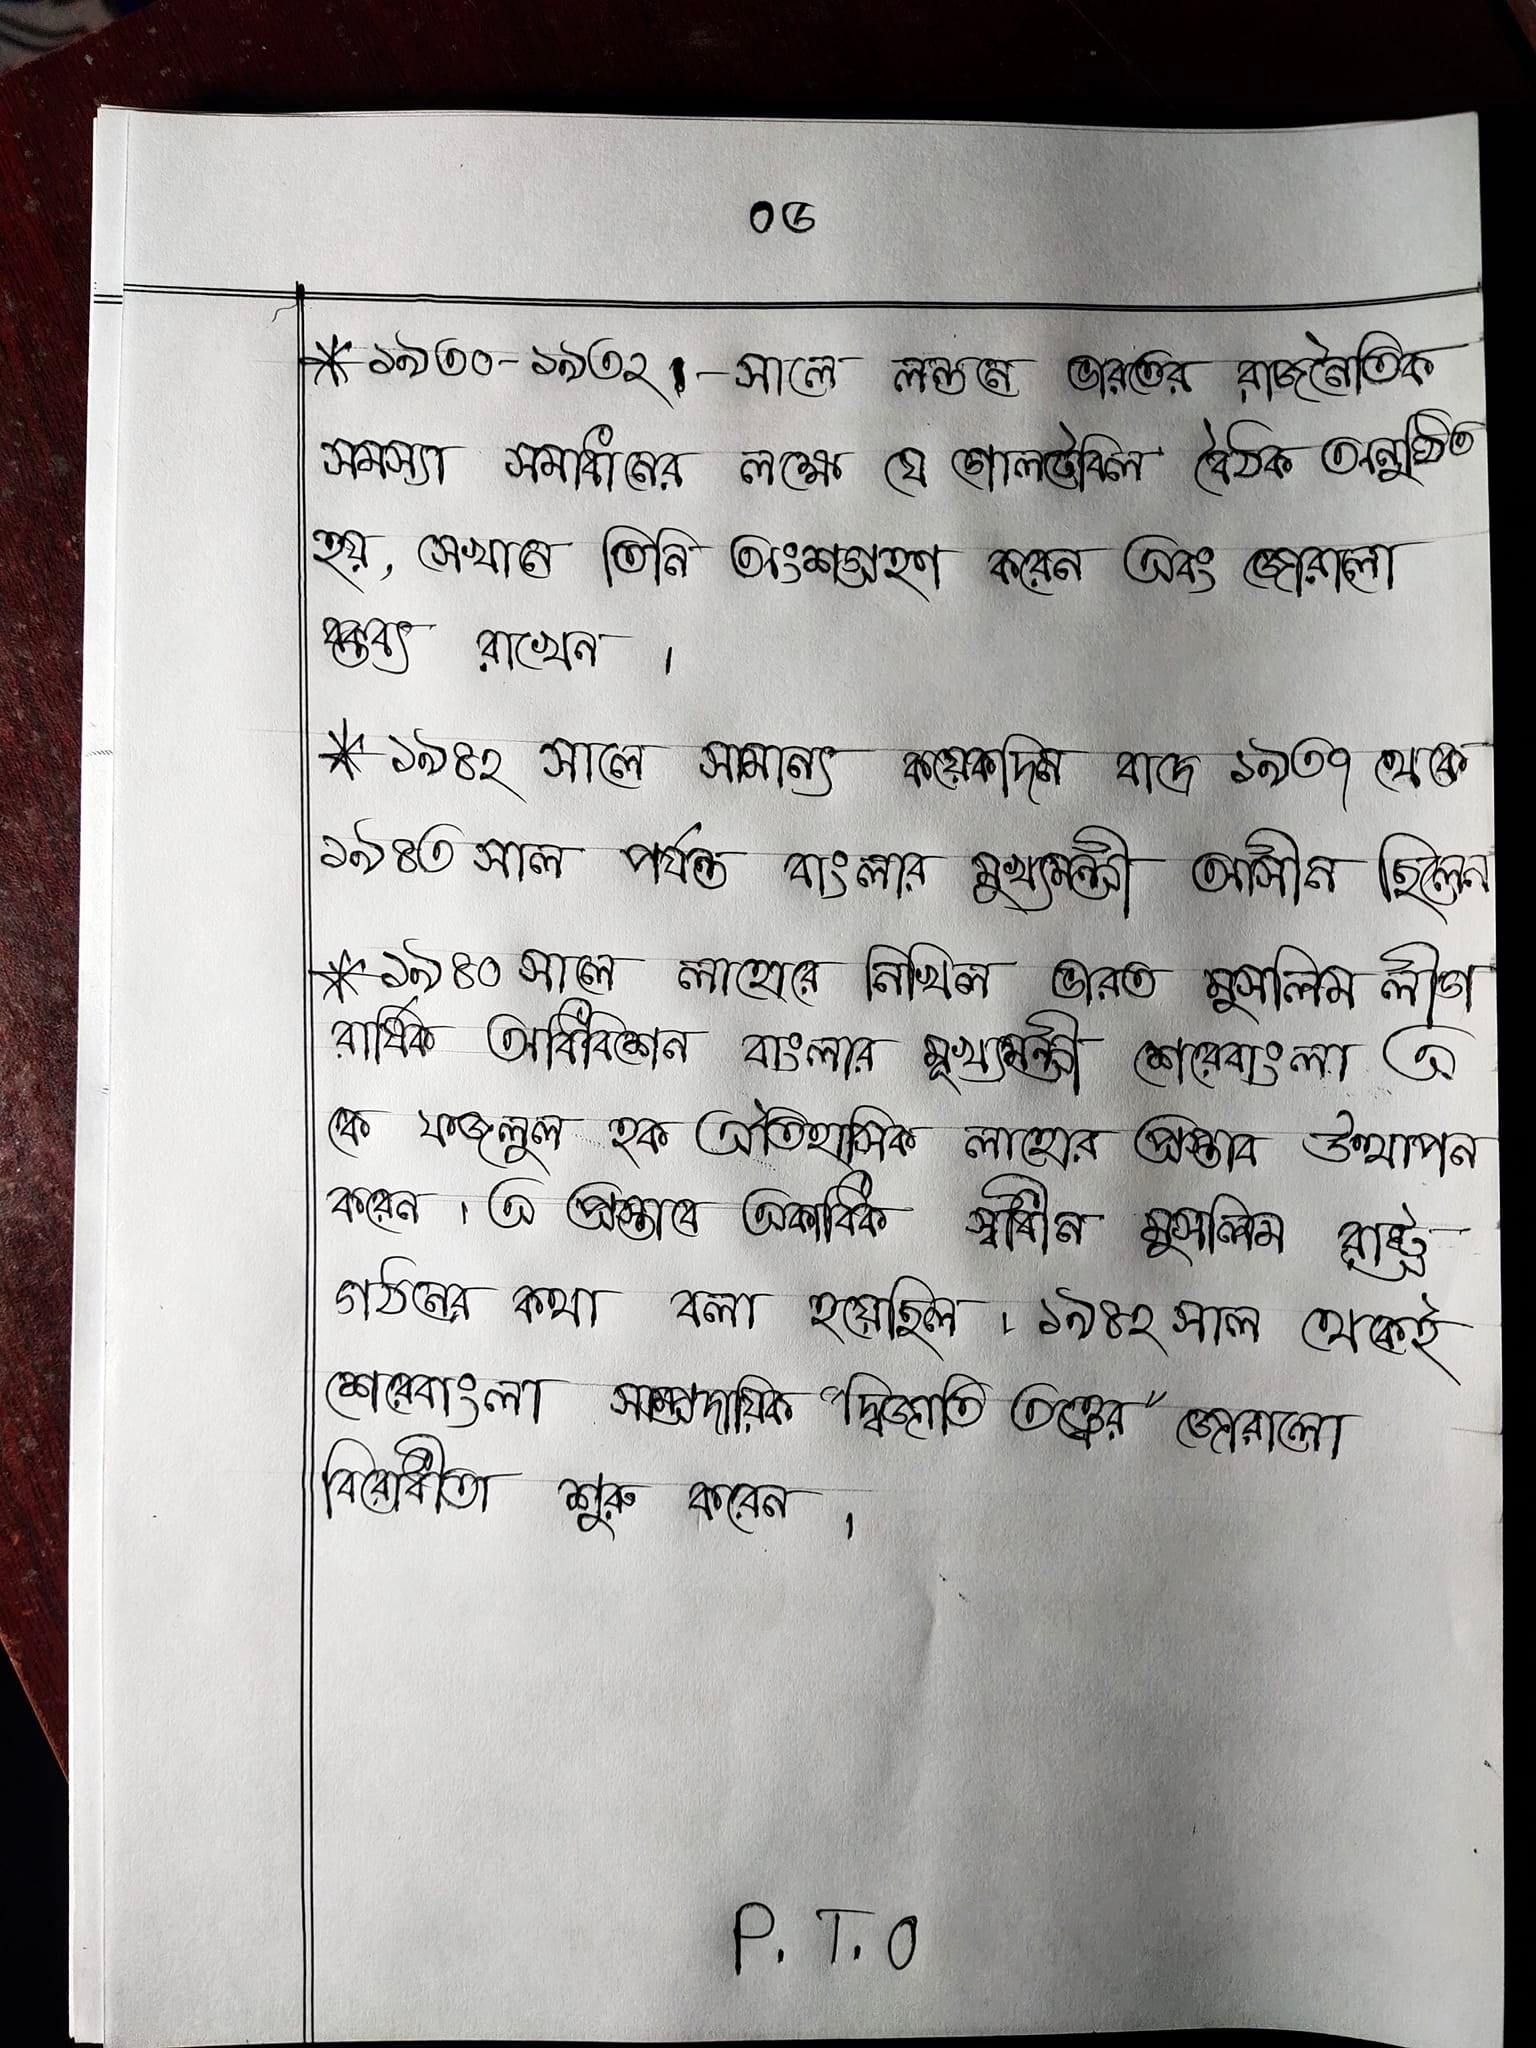 ০৬
* ১৯৩০-১৯৩২ :- সালে লন্ডনে ভারতের রাজনৈতিক
সমস্যা সমাধানের লক্ষে যে গোলটেবিল বৈঠক অনুষ্ঠিত
হয়, সেখানে তিনি অংশগ্রহণ করেন এবং জোরালো
বক্তব্য রাখেন ।
* ১৯৪২ সালে সামান্য কয়েকদিন বাদে ১৯৩৭ থেকে
১৯৪৩ সাল পর্যন্ত বাংলার মুখ্যমন্ত্রী আসীন ছিলেন
* ১৯৪০ সালে লাহোরে নিখিল ভারত মুসলিম লীগ
বার্ষিক অধিবিশেন বাংলার মূখ্যমন্ত্রী শেরেবাংলা এ
কে ফজলুল হক ঐতিহাসিক লাহোর প্রস্তাব উত্থাপন
করেন । এ প্রস্তাবে একাধিক স্বাধীন মুসলিম রাষ্ট্র
গঠনের কথা বলা হয়েছিল । ১৯৪২ সাল থেকেই
শেরেবাংলা সাম্প্রদায়িক "দ্বিজাতি তত্ত্বের" জোরালো
বিরোধীতা শুরু করেন ।
P. T. O